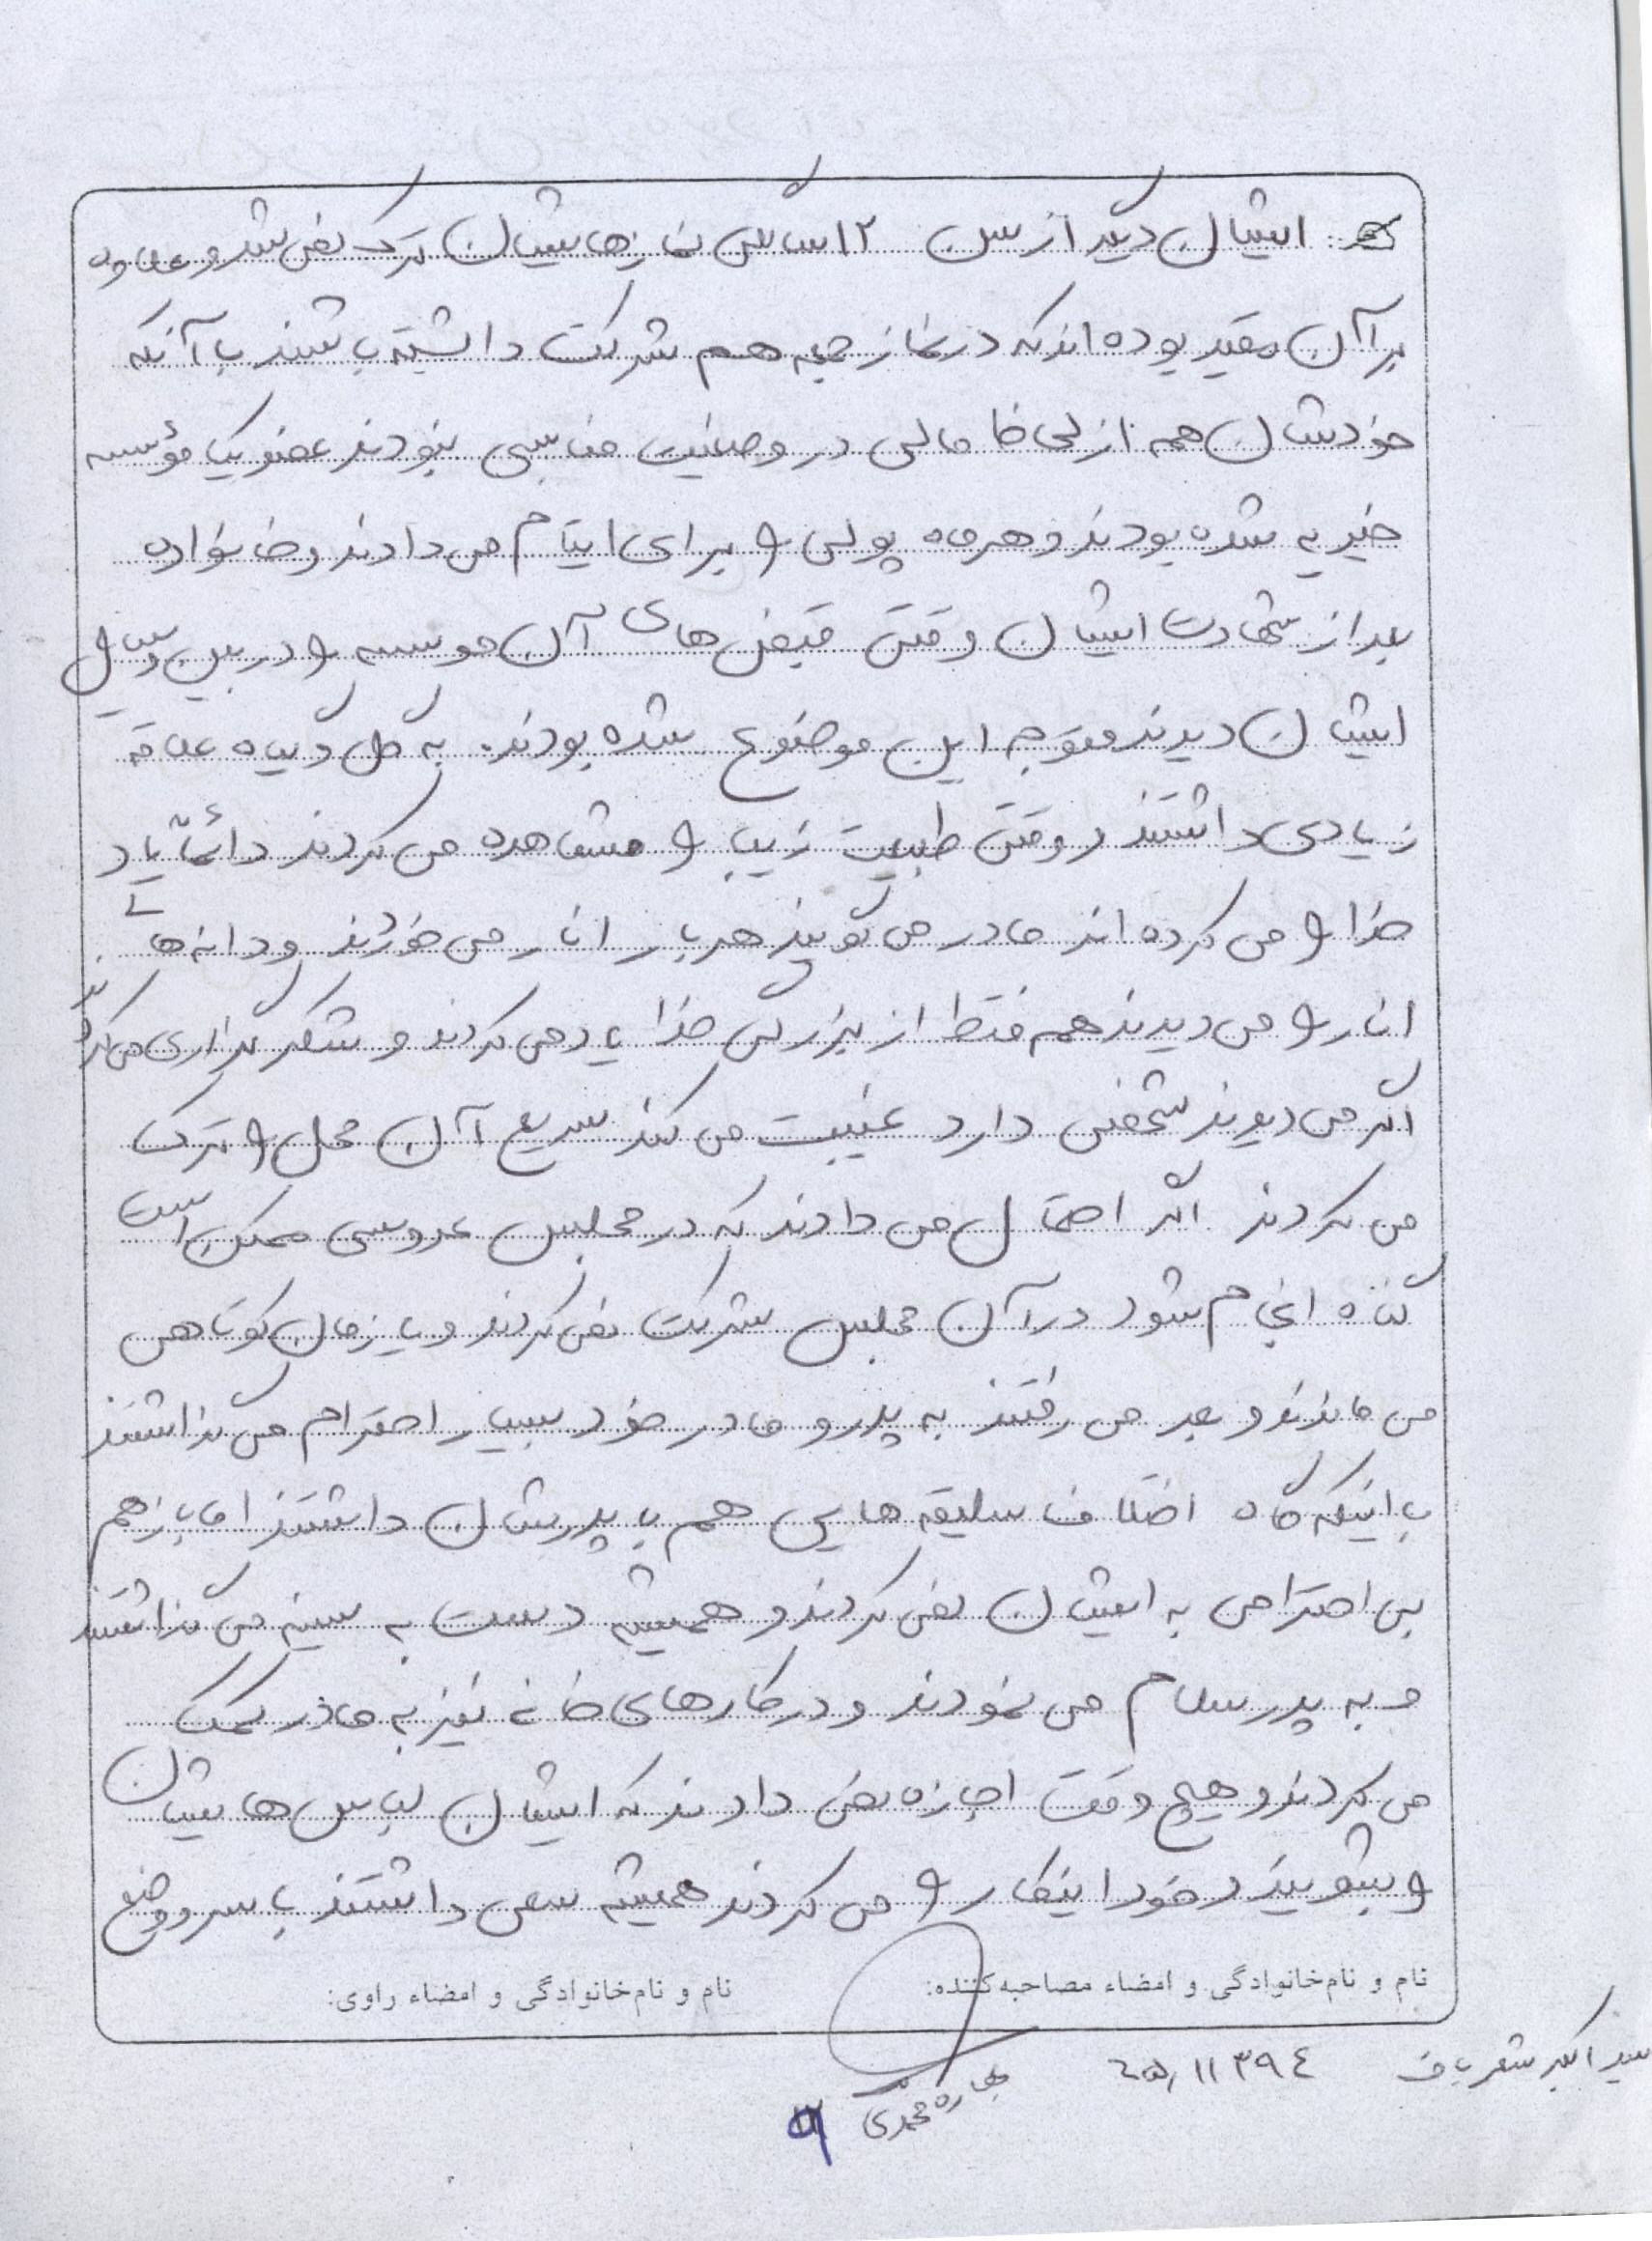 ایشان دیگر از سن ۱۲ سالگی نمازهایشان ترک نمی شد و علاوه
بر آن مقید بوده اند که در نماز جمعه هم شرکت داشته باشند با آنکه
خودشان هم از لحاظ مالی در وضعیت مناسبی نبودند عضو یک مؤسسه
خیریه شده بودند و هر ماه پولی و برای ایتام می دادند و خانواده
بعد از شهادت ایشان وقتی قبض های آن موسسه و در بین وسایل
ایشان دیدند متوجه این موضوع شده بودند. به گل و گیاه علاقه
زیادی داشتند و وقتی طبیعت زیبا و مشاهده می کردند دائماً یاد
خدا و می کرده اند مادر می گویند هر بار انار می خوردند و دانه های
انار و می دیدند هم فقط از بزرگی خدا یاد می کردند و شکر گزاری می کردند
اگر می دیدند شخصی دارد غیبت می کند سریع آن محل و ترک
می کردند اگر احتمال می دادند که در مجلس عروسی ممکن است
گناه انجام شود در آن مجلس شرکت نمی کردند و یا زمان کوتاهی
می ماندند و بعد می رفتند به پدر و مادر خود بسیار احترام می گذاشتند
با اینکه گاه اختلاف سلیقه هایی هم با پدرشان داشتند اما باز هم
بی احترامی به ایشان نمی کردند و همیشه دست به سینه می گذاشتند
و به پدر سلام می نمودند و در کارهای خانه نیز به مادر کمک
می کردند و هیچ وقت اجازه نمی دادند که ایشان لباس هایشان
و بشویند و خود اینکار و می کردند همیشه سعی داشتند با سر و وضع
نام و نام‌خانوادگی و امضاء مصاحبه‌کننده: نام و نام‌خانوادگی و امضاء راوی:
سید اکبر شعرباف ۶۵٫۱۱۳۹۴
بهاره محمدی
۹